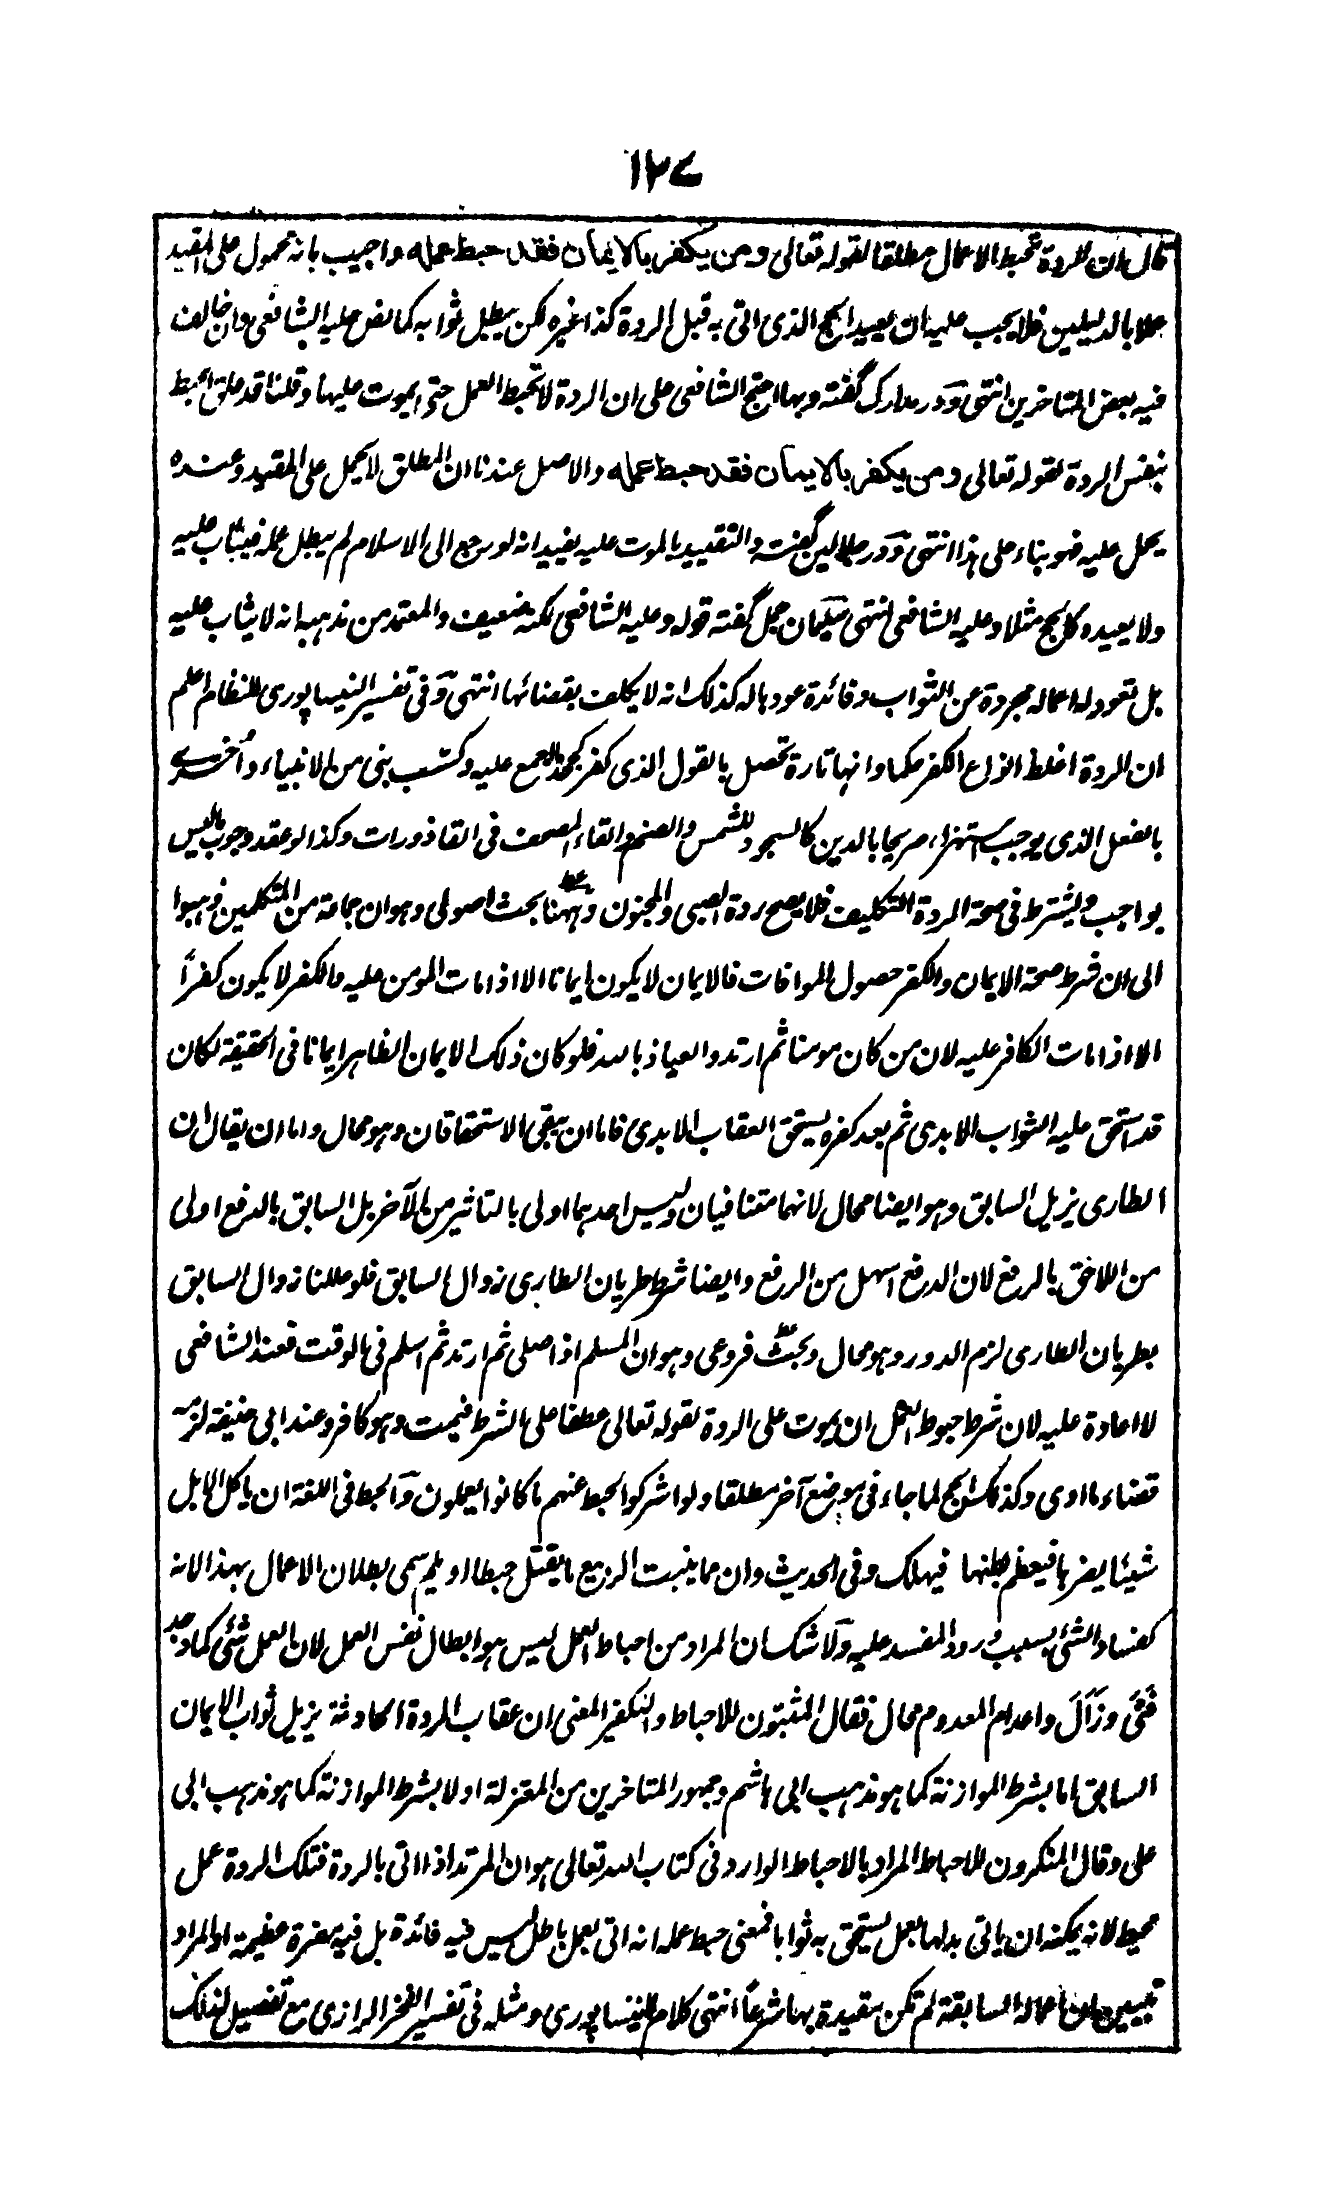 ١٢٧
قال ان الردة تحبط الاعمال مطلقا لقوله تعالى ومن يكفر بالايمان فقد حبط عمله واجيب بانه محمول على المقيد
عملا بالدليلين فلا يجب عليه ان يعيد الحج الذى اتى به قبل الردة كذا غيره لكن يبطل ثوابه كما نص عليه الشافعى وان خالف
فيه بعض المتاخرين انتهى ودر مدارك گفته وبها احتج الشافعى على ان الردة لا تحبط العمل حتى يموت عليها وقلنا قد علق الحبط
بنفس الردة لقوله تعالى ومن يكفر بالايمان فقد حبط عمله والاصل عندنا ان المطلق لا يحمل على المقيد وعنده
يحمل عليه فهو بناء على هذا انتهى ودر جلالين گفته والتقييد بالموت عليه يفيد انه لو رجع الى الاسلام لم يبطل عمله فيثاب عليه
ولا يعيده كالحج مثلا وعليه الشافعى انتهى سليمان جمل گفته قوله وعليه الشافعى لكنه ضعيف والمعتمد من مذهبه انه لا يثاب عليه
بل تعود له اعماله مجردة عن الثواب وفائدة عودها له كذلك انه لا يكلف بقضائها انتهى وفى تفسير النيساپورى للنظام اعلم
ان الردة اغلظ انواع الكفر حكما وانها تارة تحصل بالقول الذى كفر كجحد المجمع عليه وكسب نبى من الانبياء واخرى
بالفعل الذى يوجب استهزاء صريحا بالدين كالسجود للشمس والصنم والقاء المصحف فى القاذورات وكذا لو عقد وجوب ما ليس
بواجب ويشترط فى صحة الردة التكليف فلا يصح ردة الصبى والمجنون وههنا بحث اصولى وهو ان جماعة من المتكلمين ذهبوا
الى ان شرط صحة الايمان والكفر حصول الموافات فالايمان لا يكون ايمانا الا اذا مات المومن عليه والكفر لا يكون كفرًا
الا اذا مات الكافر عليه لان من كان مومنا ثم ارتد والعياذ بالله فلو كان ذلك الايمان الظاهر ايمانا فى الحقيقة لكان
قد استحق عليه الثواب الابدى ثم بعد كفره يستحق العقاب الابدى فاما ان يبقى الاستحقاقان وهو محال واما ان يقال ان
الطارى يزيل السابق وهو ايضا محال لانهما متنافيان وليس احدهما اولى بالتاثير من الآخر بل السابق بالدفع اولى
من اللاحق بالرفع لان الدفع اسهل من الرفع وايضا شرط طريان الطارى زوال السابق فلو عللنا زوال السابق
بطريان الطارى لزم الدور وهو محال وبحث فروعى وهو ان المسلم اذا صلى ثم ارتد ثم اسلم فى الوقت فعند الشافعى
لا اعادة عليه لان شرط حبوط العمل ان يموت على الردة لقوله تعالى عطفا على الشرط فيمت وهو كافر وعند ابى حنيفة لزمه
قضاء ما ادى وكذلك الحج لما جاء فى موضع آخر مطلقا ولو اشركوا لحبط عنهم ما كانوا يعملون والحبط فى اللغة ان ياكل الابل
شيئا يضرها فيعظم بطنها فيهلك وفى الحديث وان مما ينبت الربيع ما يقتل حبطا او يلم سمى بطلان الاعمال بهذا لانه
كفساد الشئ بسبب ورود المفسد عليه ولا شك ان المراد من احباط العمل ليس هو ابطال نفس العمل لان العمل شئ كما وجد
فنى وزال واعدام المعدوم محال فقال المثبتون للاحباط والتكفير المعنى ان عقاب الردة الحادثة يزيل ثواب الايمان
السابق اما بشرط الموازنة كما هو مذهب ابى هاشم وجمهور المتاخرين من المعتزلة او لا بشرط الموازنة كما هو مذهب ابى
على وقال المنكرون للاحباط المراد بالاحباط الوارد فى كتاب الله تعالى هو ان المرتد اذا اتى بالردة فتلك الردة عمل
محبط لانه يمكنه ان ياتى بدلها بعمل يستحق به ثوابا فمعنى حبط عمله انه اتى بعمل باطل ليس فيه فائدة بل فيه مضرة عظيمة او المراد
تبيين ان اعماله السابقة لم تكن مقيدة بها شرعًا انتهى كلام النيساپورى ومثله فى تفسير الفخر الرازى مع تفصيل لذلك